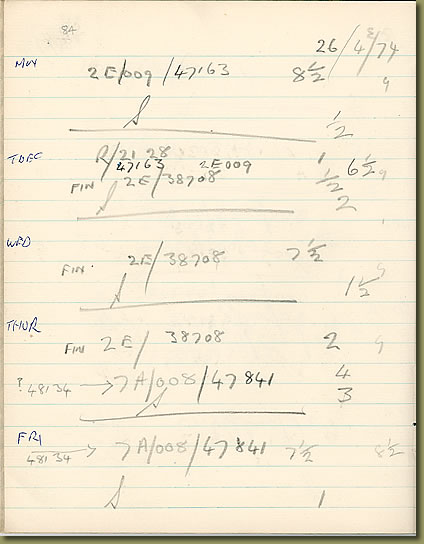 84
26/4/74
MON 2E/009/47163 8½ 9
S ½
TUEC R/21 28 1 6½ 9
47163 2E009 ½
FIN 2E/38708
S 2
WED FIN 2E/38708 7½ 9
S 1½
THUR FIN 2E/ 38708 2 9
? 48134 → 7A/008/47841 4
S 3
FRI
48134 → 7A/008/47841 7½ 8½
S 1